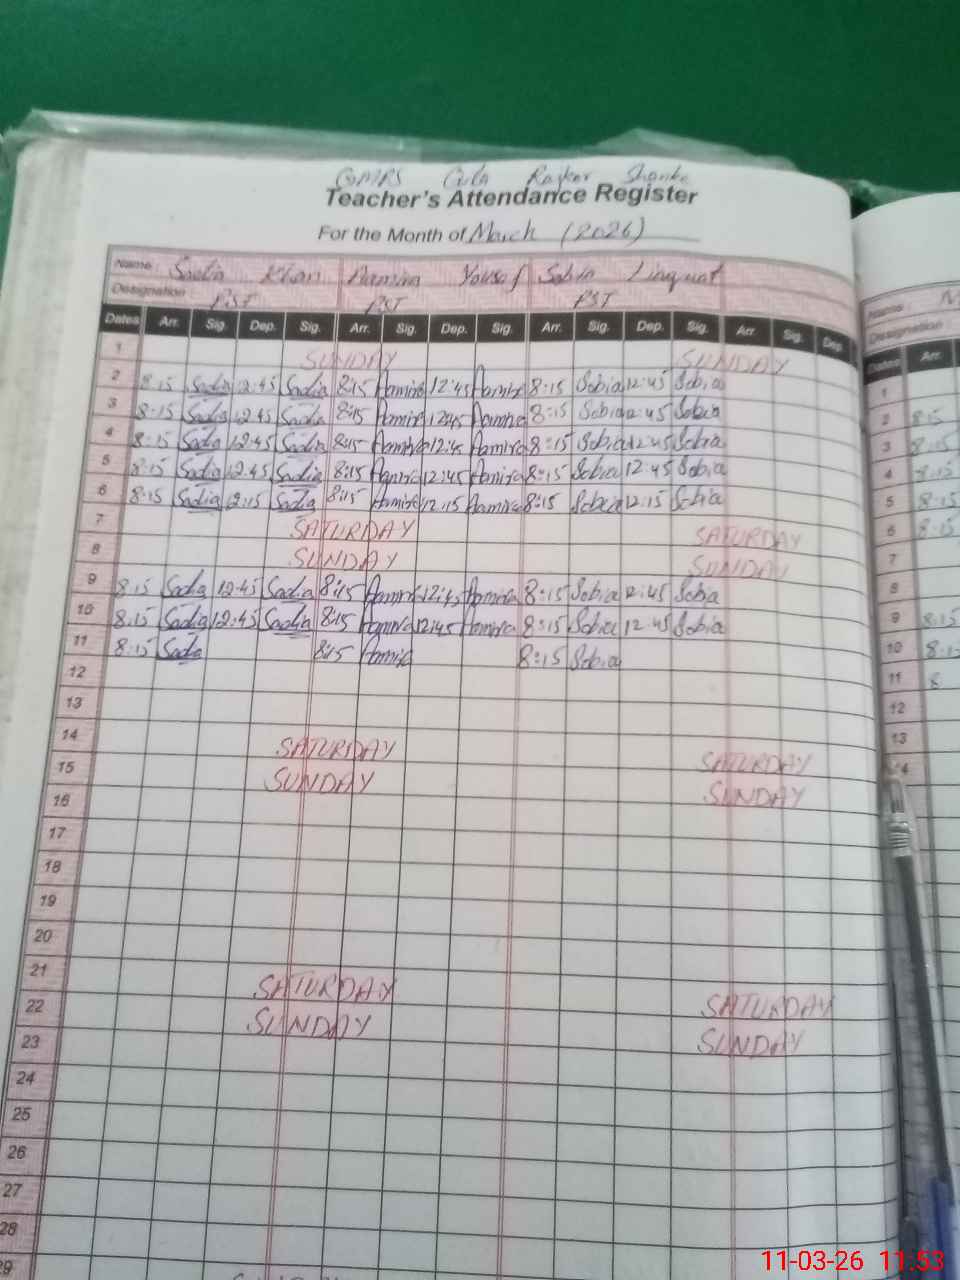 GMPS
Teacher's Attendance Register
For the Month of March (2026)
Name Sadia Khan Aamira Yousaf Sobia Liaquat
Designation PST PST PST
Dates Arr. Sig. Dep. Sig. Arr. Sig. Dep. Sig. Arr. Sig. Dep. Sig. Arr. Sig. Dep
1 SUNDAY SUNDAY
2 8:15 Sadia 12:45 Sadia 8:15 Aamira 12:45 Aamira 8:15 Sobia 12:45 Sobia
3 8:15 Sadia 12:45 Sadia 8:15 Aamira 12:45 Aamira 8:15 Sobia 12:45 Sobia
4 8:15 Sadia 12:45 Sadia 8:15 Aamira 12:45 Aamira 8:15 Sobia 12:45 Sobia
5 8:15 Sadia 12:45 Sadia 8:15 Aamira 12:45 Aamira 8:15 Sobia 12:45 Sobia
6 8:15 Sadia 12:15 Sadia 8:15 Aamira 12:15 Aamira 8:15 Sobia 12:15 Sobia
7 SATURDAY SATURDAY
8 SUNDAY SUNDAY
9 8:15 Sadia 12:45 Sadia 8:15 Aamira 12:45 Aamira 8:15 Sobia 12:45 Sobia
10 8:15 Sadia 12:45 Sadia 8:15 Aamira 12:45 Aamira 8:15 Sobia 12:45 Sobia
11 8:15 Sadia 8:15 Aamira 8:15 Sobia
12
13
14 SATURDAY SATURDAY
15 SUNDAY SUNDAY
16
17
18
19
20
21 SATURDAY SATURDAY
22 SUNDAY SUNDAY
23
24
25
26
27
28
29
Name
Designation
Dates Arr.
1
2 8:15
3 8:15
4 8:15
5 8:15
6 8:15
7
8
9 8:15
10 8:1
11 8
12
13
14
11-03-26 11:53